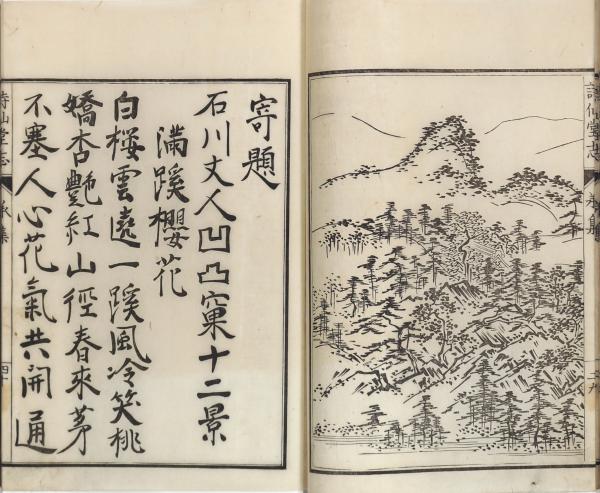 詩仙堂志
寄題
石川丈人凹凸窠十二景
滿蹊櫻花
白桜雲遶一蹊風冷笑桃
嬌杏艶紅山徑春來茅
不塞人心花氣共開通
詩仙堂志
承集
四十